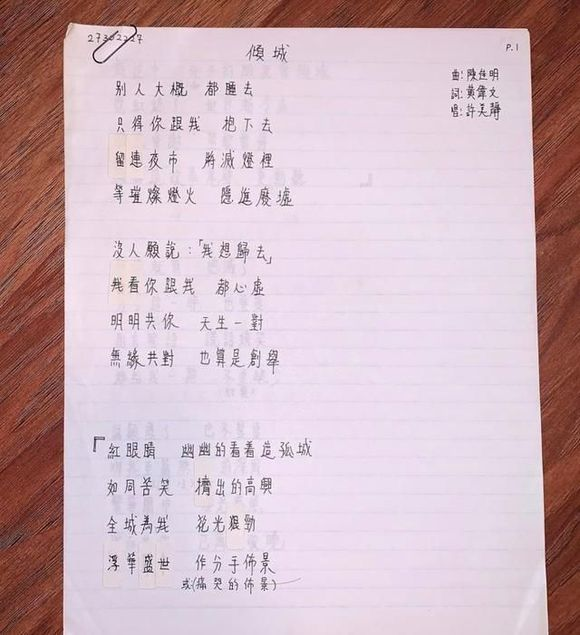 27302227
P.1
傾城
曲: 陳進明
詞: 黃偉文
唱: 許美靜
别人大概 都睡去
只得你跟我 抱下去
留連夜市 將滅燈裡
等璀燦燈火 隱進廢墟
沒人願說：「我想歸去」
我看你跟我 都心虛
明明共你 天生一對
無緣共對 也算是創舉
『紅眼睛 幽幽的看着這孤城
如同苦笑 擠出的高興
全城為我 花光狠勁
浮華盛世 作分手佈景
或(痛哭的佈景)